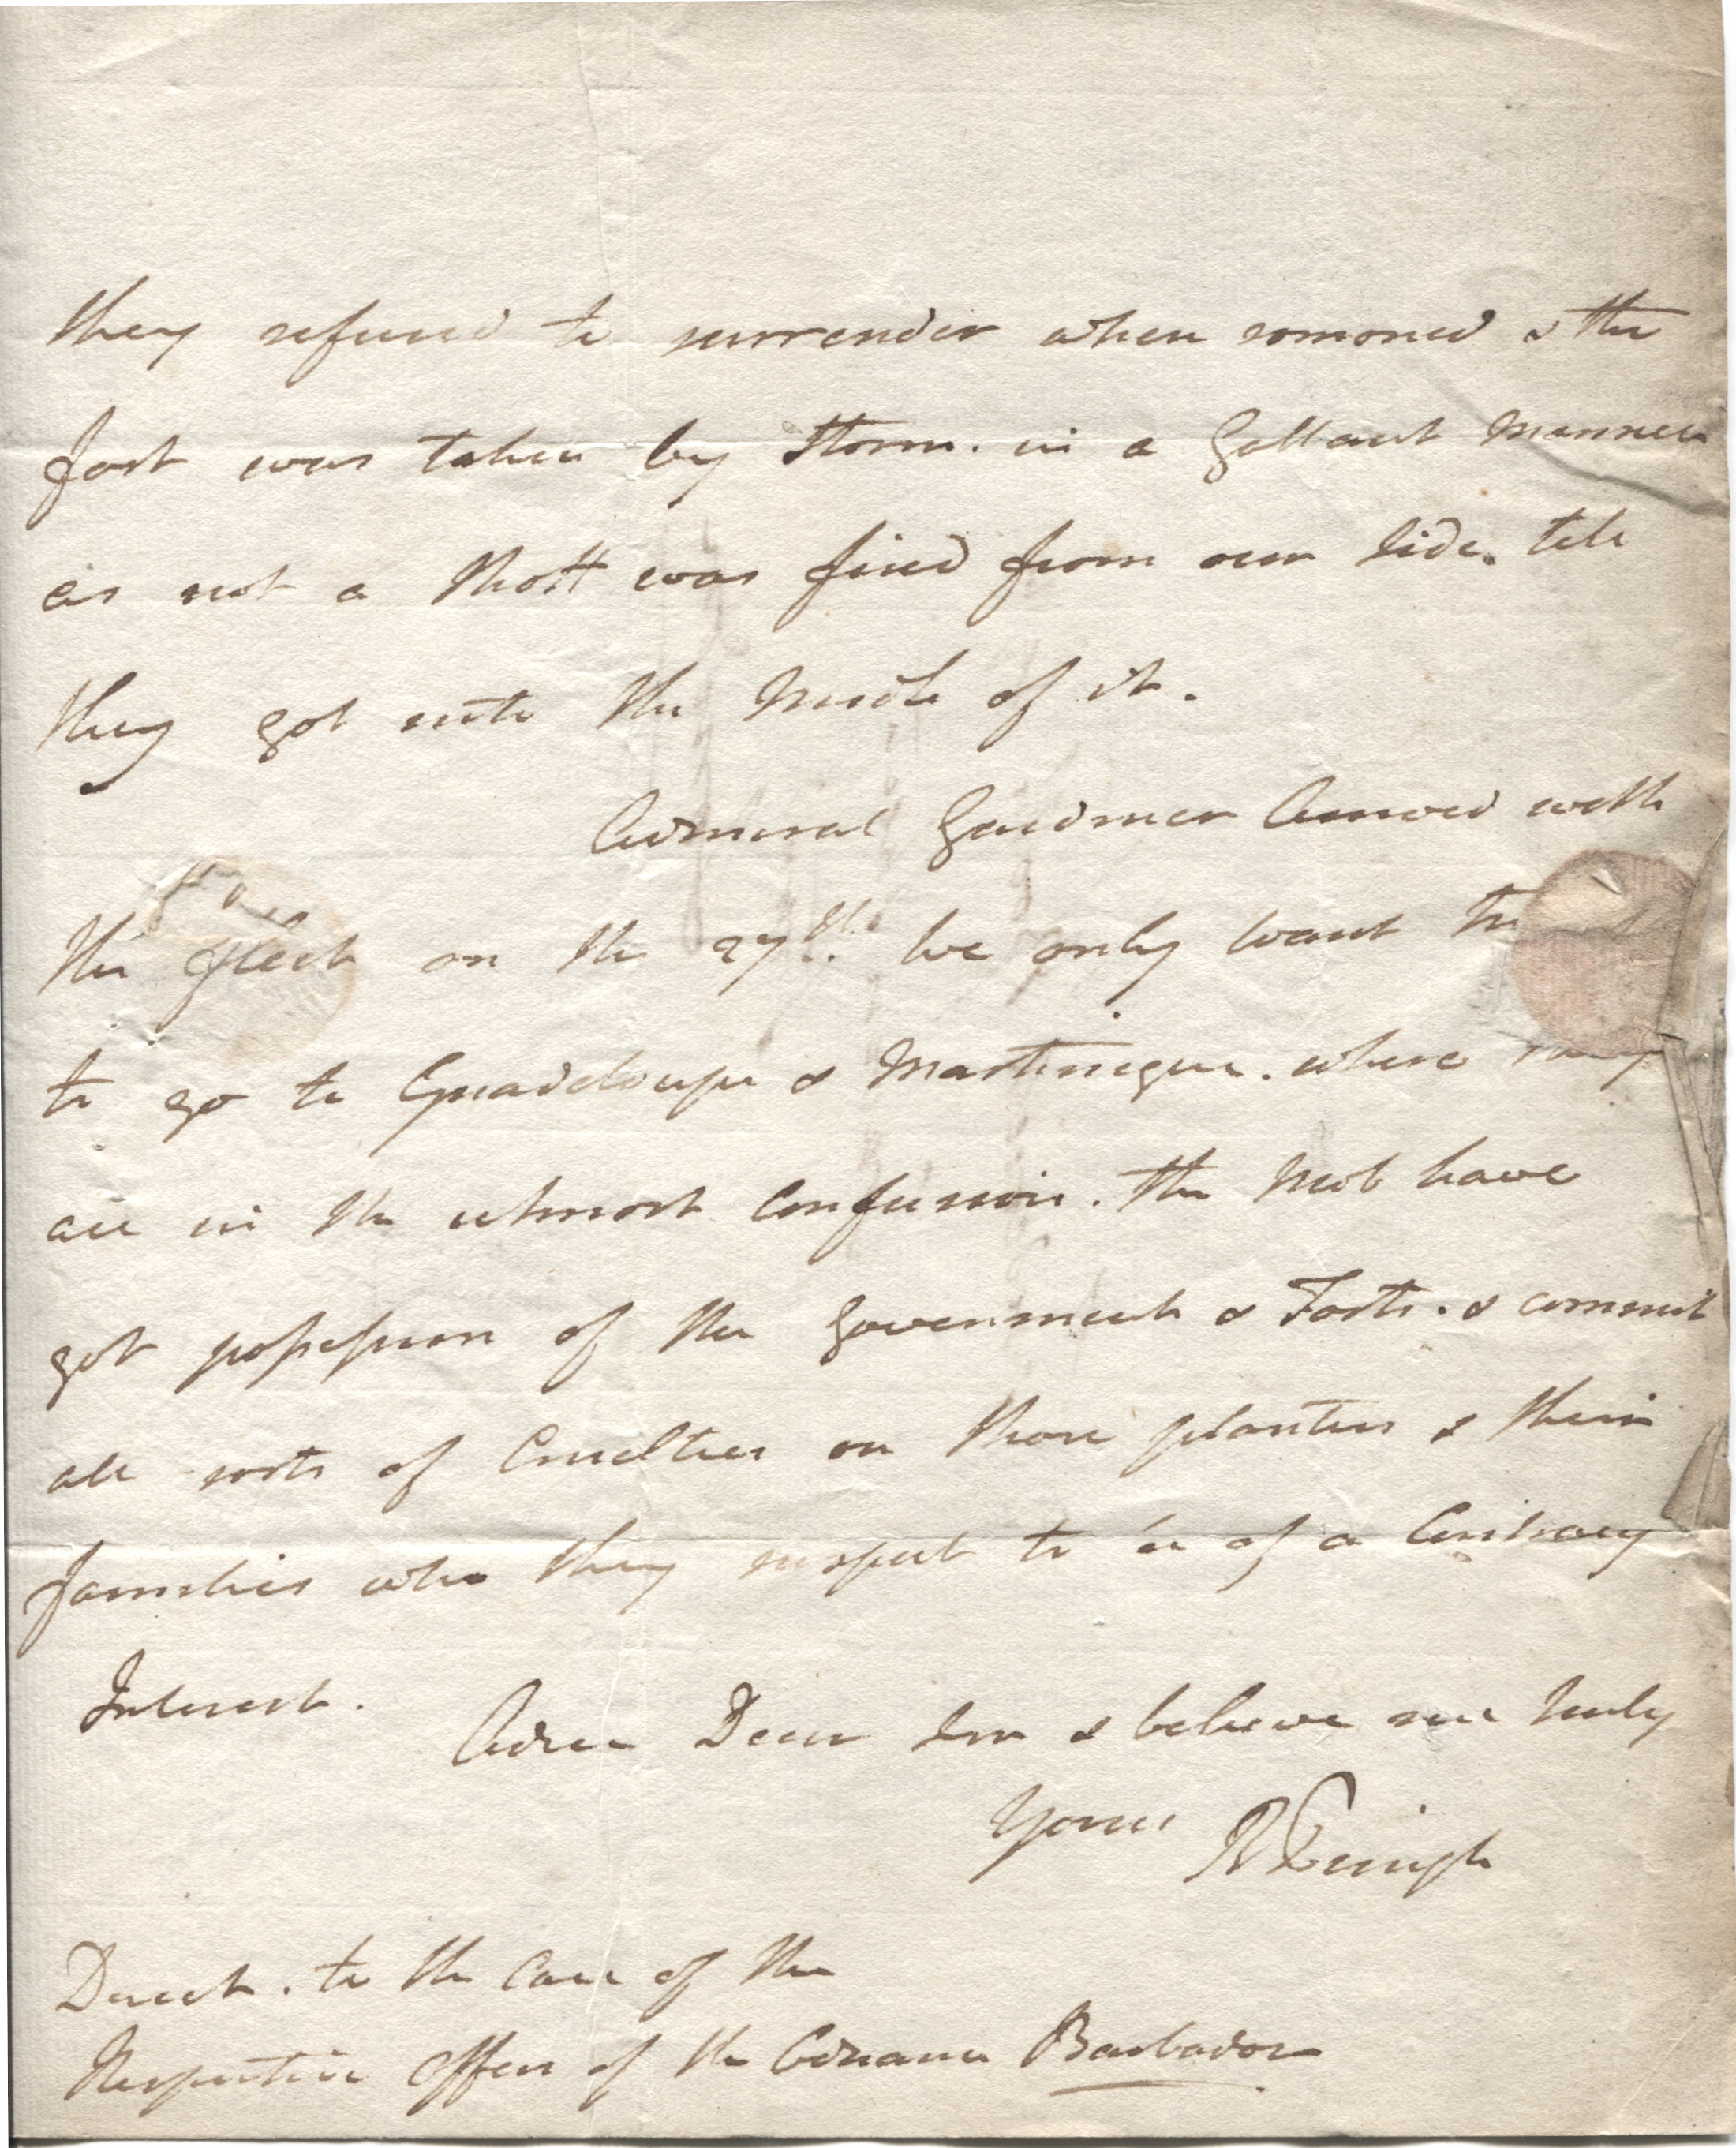 they refused to surrender when somoned & the
fort was taken by Storm. in a Gallant Manner
as not a Shott was fired from our Side. till
they got into the Midle of it.
Admiral Gardner Arrived with
the fleet on the 27th. We only want
to go to Guadeloupe & Martinique. where they
are in the utmost Confusion. the Mob have
got possession of the Government & Forts. & commit
all sorts of Cruelties on those planters & their
families who they suspect to be of a Contrary
Interest.
Adieu Dear Sir & believe me truly
Yours
Direct. to the Care of the
Respective Officers of the Ordnance Barbados